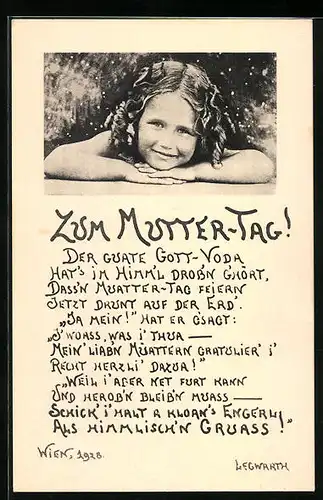 ZUM MUTTER-TAG!
DER GUATE GOTT-VODA
HAT'S IM HIMM'L DROB'N GHÖRT,
DASS'N MUATTER-TAG FEIERN
JETZT DRUNT AUF DER ERD'.
„JA MEIN!" HAT ER G'SAGT:
„I' WOASS, WAS I' THUA —
MEIN' LIAB'N MUATTERN GRATULIER' I'
RECHT HERZLI' DAZUA!"
„WEIL I' ABER NET FURT KANN
UND HEROB'N BLEIB'N MUASS —
SCHICK' I' HALT A KLOAN'S ENGERL
ALS HIMMLISCH'N GRUASS!"
WIEN, 1928.
LEGWARTH